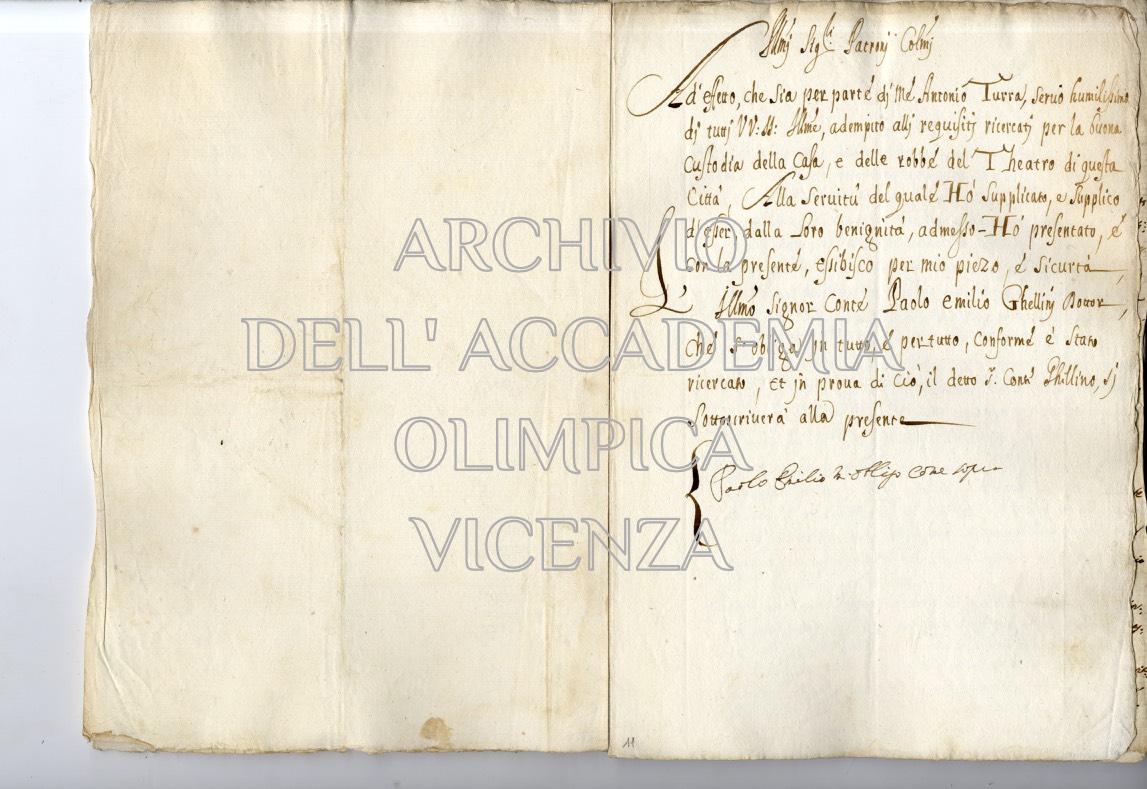 Illmj Sig:li Patronj Colmj
Ad' effetto, che sia per parte dj Me Antonio Turra, servo humilissimo
dj tuttj VV: SS: Illme, adempito allj requisitj ricercatj per la buona
Custodia della Casa, e delle robbe del Theatro di questa
Città, Alla Servitù del quale Hò Supplicato, e Supplico
d'esser dalla Loro benignità, admesso - Hò presentato, e
con la presente, essibisco per mio piezo, e sicurtà,
L' Illmo Signor Conte Paolo emilio Ghellinj Dottor,
Che s'obliga jn tutto, e pertutto, Conforme è stato
ricercato, Et jn prova di Ciò, il detto S. Conte Ghellino, sj
Sottoscriverà alla presente
Paolo Emilio m'obligo come sopra
11
ARCHIVIO
DELL' ACCADEMIA
OLIMPICA
VICENZA